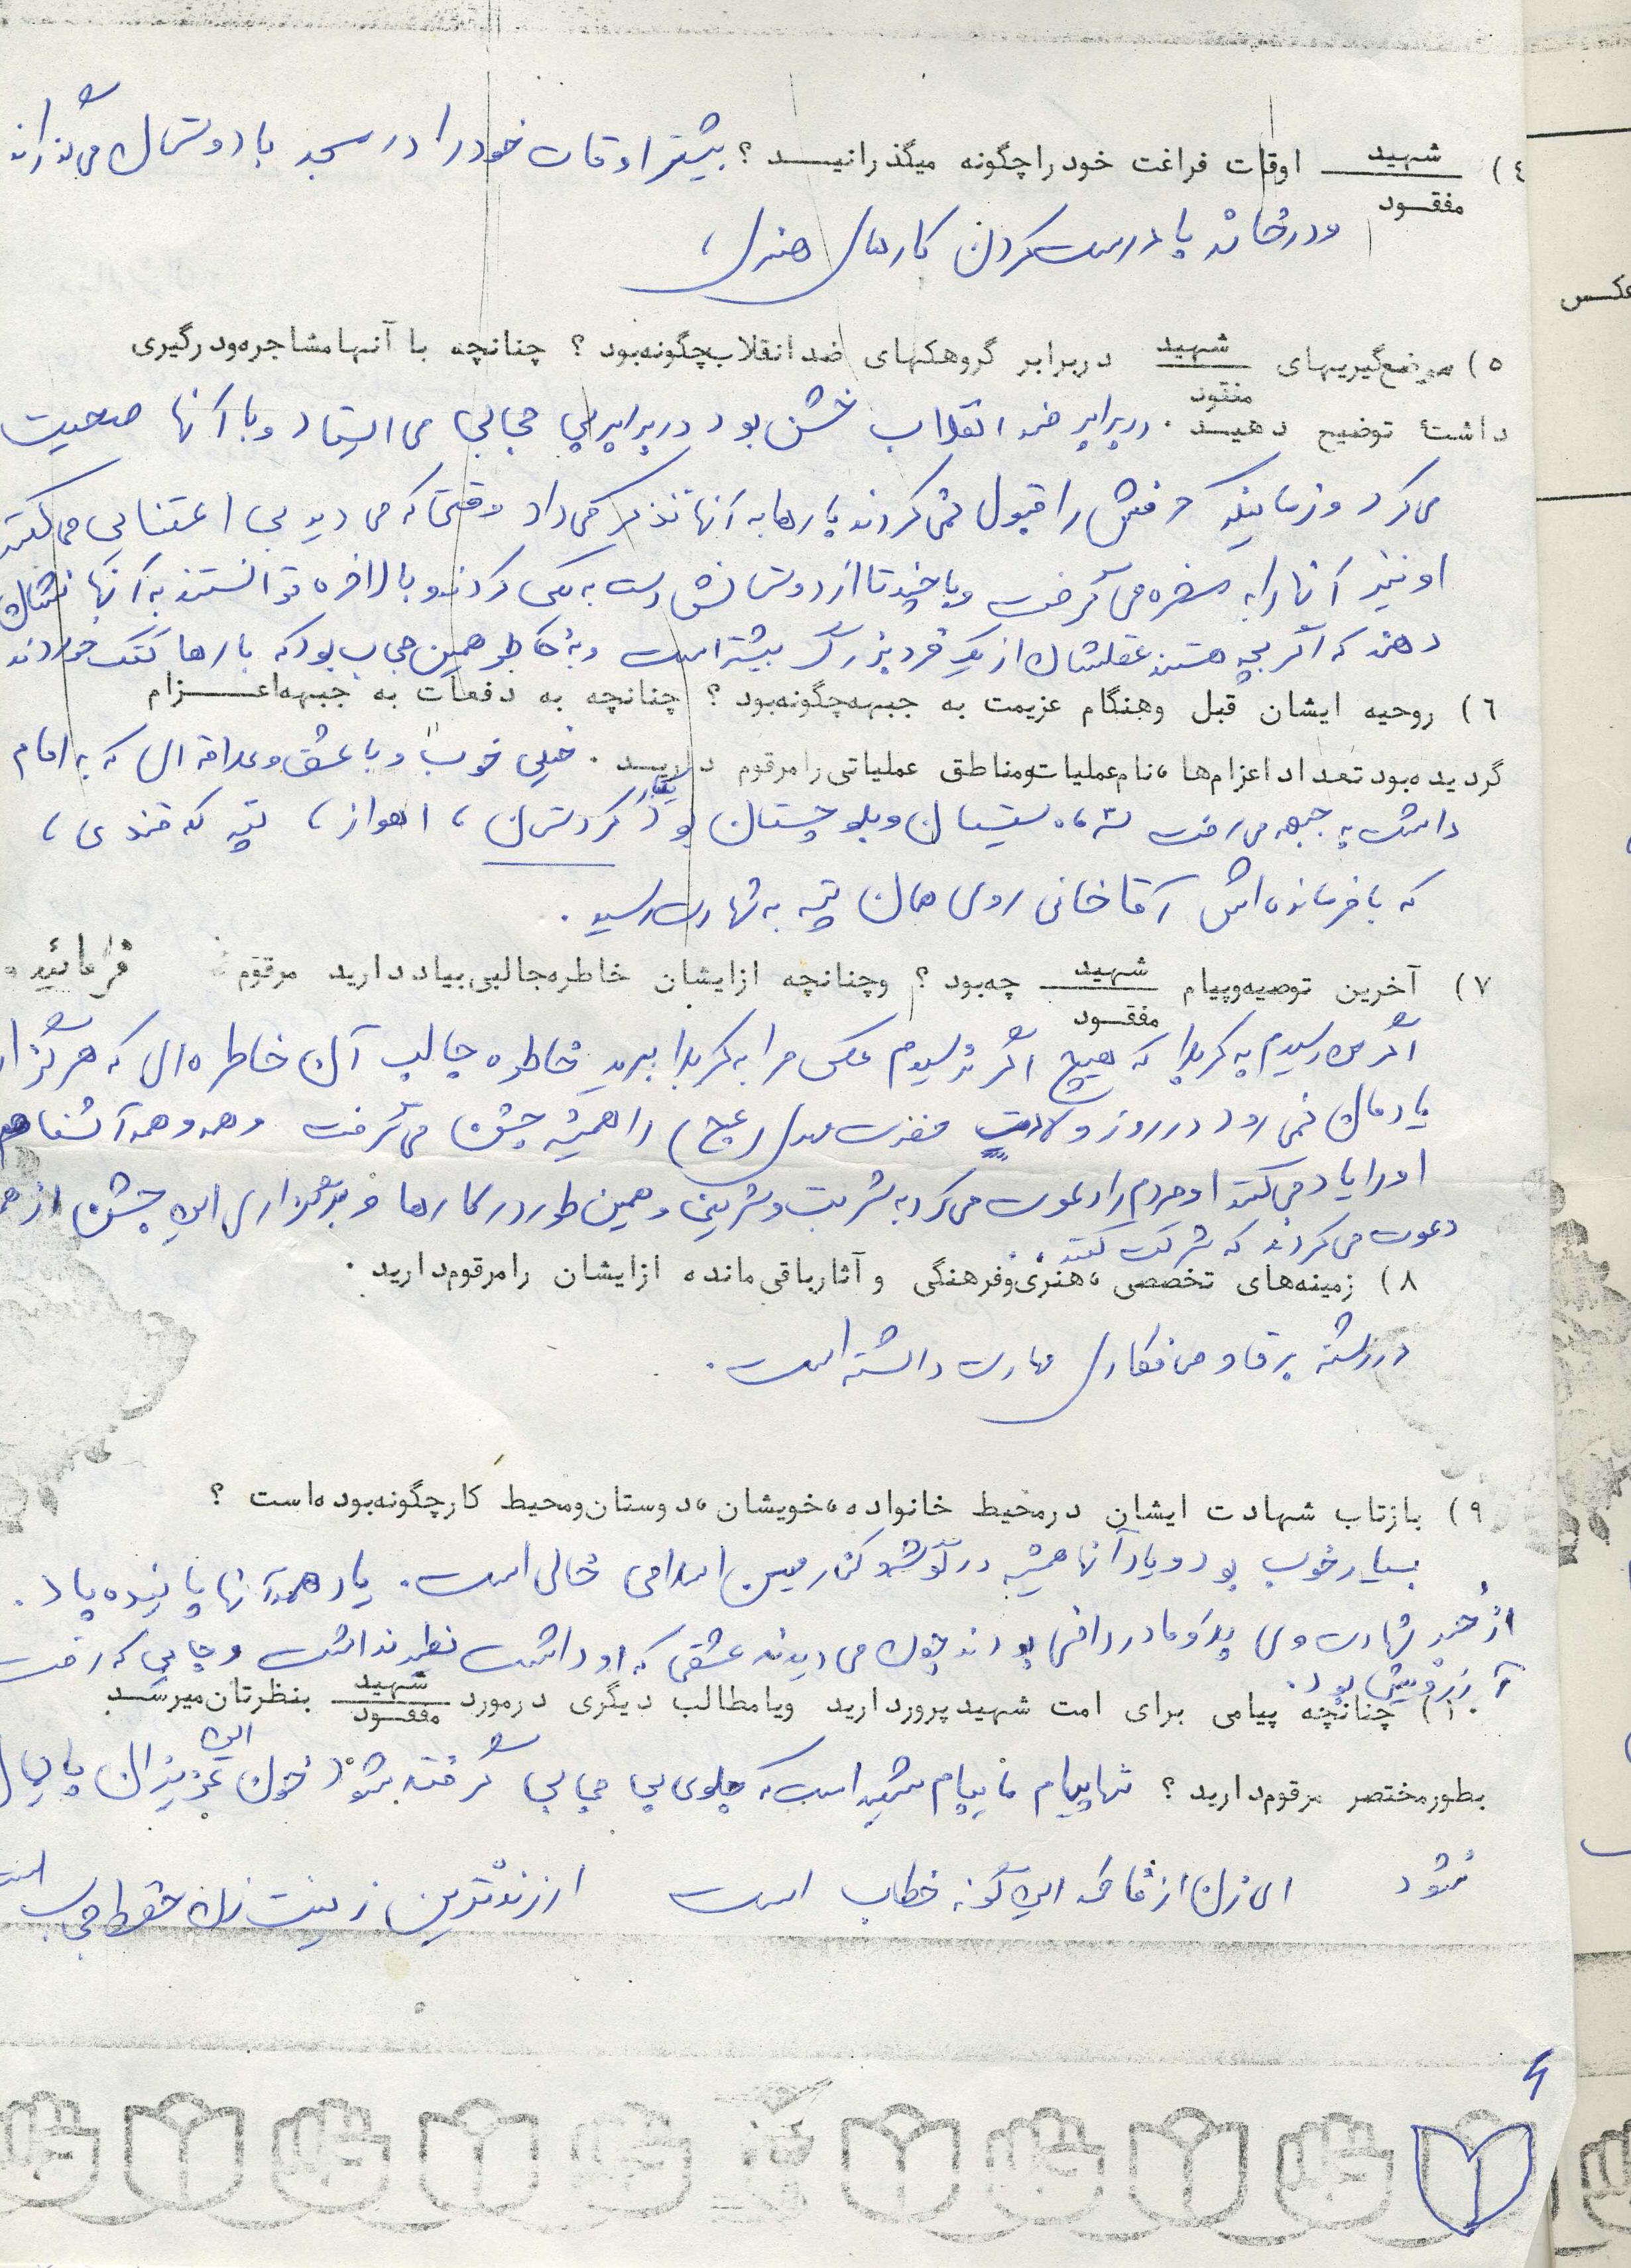 ۴) شهید اوقات فراغت خود را چگونه میگذرانید ؟ بیشتر اوقات خود را در مسجد با دوستان می‌گذراند
مفقود
و در خانه با درست کردن کارهای هنری ،
عکس
۵) موضع‌گیریهای شهید در برابر گروهکهای ضد انقلاب چگونه بود ؟ چنانچه با آنها مشاجره و درگیری
مفقود
داشته توضیح دهید . در برابر ضد انقلاب خشن بود در برابر بی حجابی می ایستاد و با آنها صحبت
می کرد و زمانیکه حرفش را قبول نمی کردند بارها به آنها تذکر می داد وقتی که می دید بی اعتنایی می کنند
او نیز آنها را به مسخره می گرفت و با چند تا از دوستانش دست به یکی کردند و بالاخره توانستند به آنها نشان
دهند که اگر بچه هستند عقلشان از یک فرد بزرگ بیشتر است و به خاطر همین حجاب بود که بارها کتک خوردند
۶) روحیه ایشان قبل و هنگام عزیمت به جبهه چگونه بود ؟ چنانچه به دفعات به جبهه اعزام
گردیده بود تعداد اعزام‌ها ، نام عملیات و مناطق عملیاتی را مرقوم دارید . خیلی خوب و با عشق و علاقه ای که به امام
داشت به جبهه می رفت سیستان و بلوچستان کردستان ، اهواز ، تپه که قندی ،
که با فرمانده اش آقاخانی روی همان تپه به شهادت رسید .
۷) آخرین توصیه و پیام شهید چه بود ؟ و چنانچه از ایشان خاطره جالبی بیاد دارید مرقوم فرمائید .
مفقود
اگر من رسیدم به کربلا که هیچ اگر نرسیدم عکس مرا به کربلا ببرید خاطره جالب آن خاطره ای که هرگز از
یادمان نمی رود در روز ولادت حضرت مهدی (عج) را همیشه جشن می گرفت و همه و همه آشنا هم
او را یاد می کنند او مردم را دعوت می کرد به شربت و شیرینی و همین طور در کارها و برگزاری این جشن از همه
دعوت می کردند که شرکت کنند .
۸) زمینه‌های تخصصی ، هنری و فرهنگی و آثار باقی مانده از ایشان را مرقوم دارید .
در رشته برق و مهارت داشته است .
۹) بازتاب شهادت ایشان در محیط خانواده ، خویشان ، دوستان و محیط کار چگونه بوده است ؟
بسیار خوب بود و یاد آنها همیشه در گوشه و کنار میهن اسلامی خالی است . یاد همه آنها پاینده باد .
از خبر شهادت وی پدر و مادر راضی بودند چون می دیدند عشقی که او داشت نظیر نداشت و جایی که رفت
آرزویش بود .
۱۰) چنانچه پیامی برای امت شهید پرور دارید و یا مطالب دیگری در مورد شهید بنظرتان میرسد
مفقود
بطور مختصر مرقوم دارید ؟ تنها پیام ما پیام شهید است که جلوی بی حجابی گرفته شود خون این عزیزان پایمال
نشود ای زن از فاطمه این گونه خطاب است ارزنده ترین زینت زن حفظ حجاب است